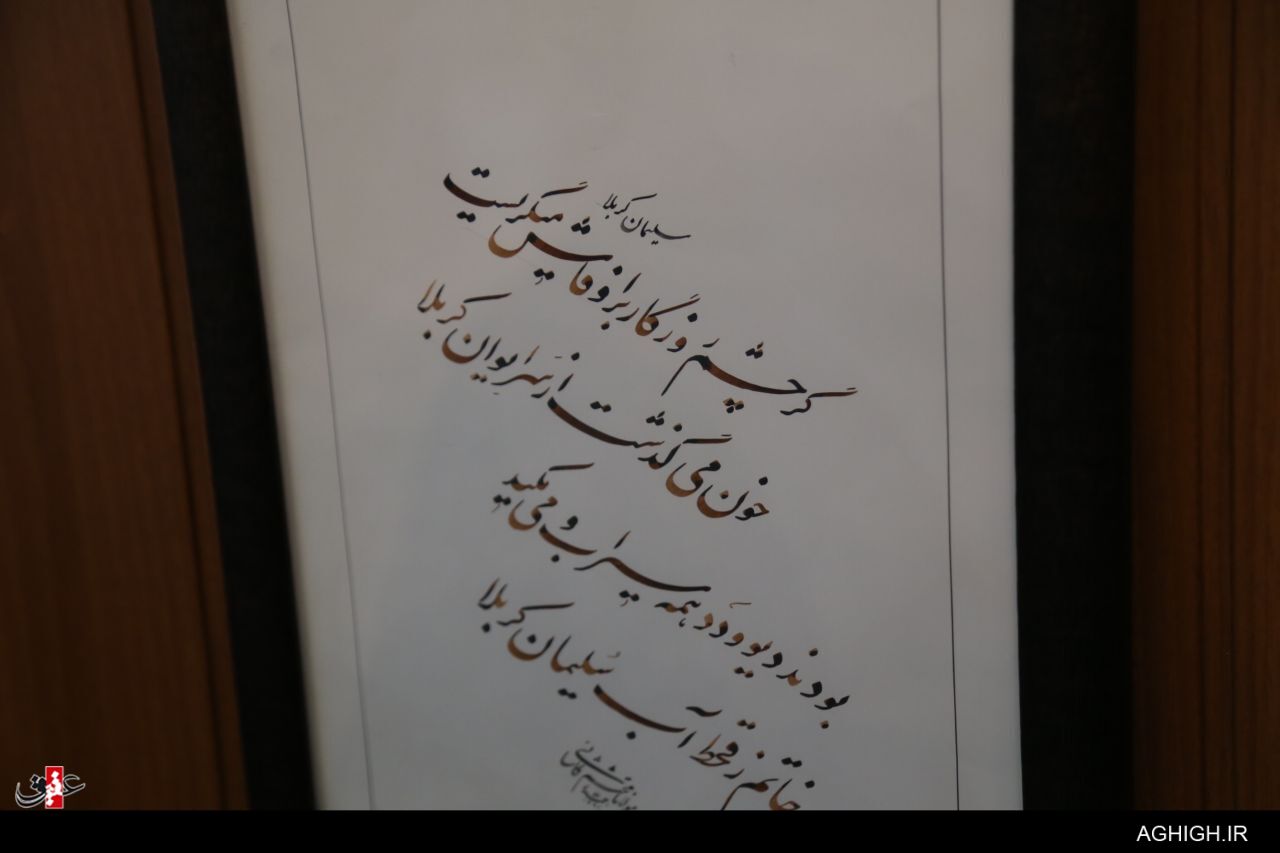 سلیمان کربلا
گر چشم روزگار بر او فاش میگریست
خون می گذشت از سر ایوان کربلا
بودند دیو و دد همه سیراب و می مکید
خاتم ز قحط آب سلیمان کربلا
عقیق
AGHIGH.IR